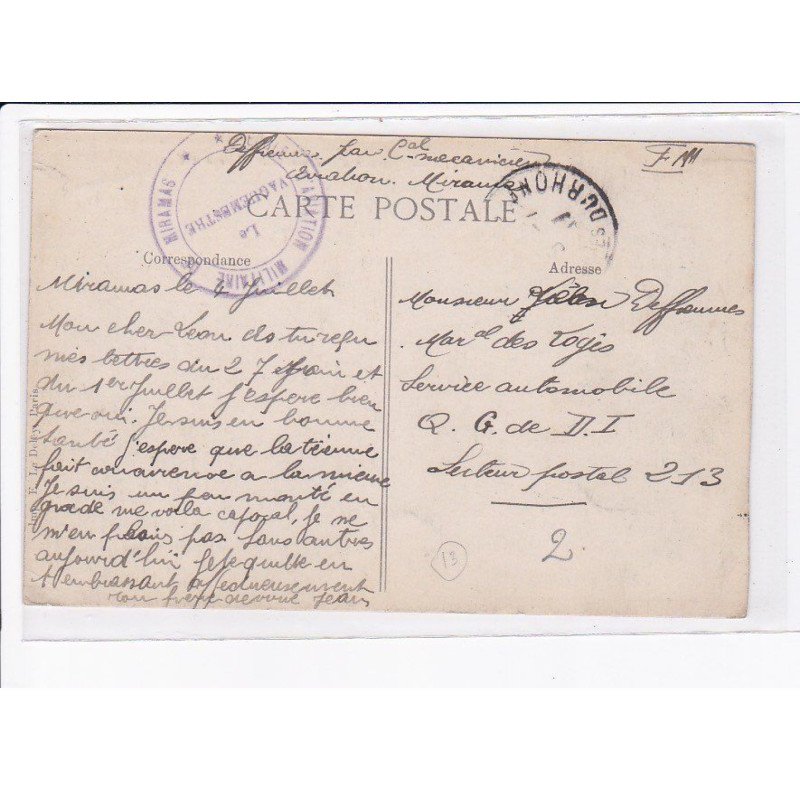 par Cal mecanicien
Aviation Miramas
F M
CARTE POSTALE
AVIATION MILITAIRE
MIRAMAS
Le
VAGUEMESTRE
DU RHONE
Correspondance
Adresse
Miramas le 4 Juillet
Mon cher Leon as tu reçu
mes lettres du 27 Juin et
du 1er Juillet j'espere bien
que oui. Je suis en bonne
santé j'espere que la tienne
fait concurence a la mienne
Je suis un peu monté en
grade me voila caporal, Je ne
m'en plains pas Sans autres
aujourd'hui Je te quitte en
t'embrassant affectueusement
ton frere devoué Jean
Monsieur Deffrennes
Maral des Logis
Service automobile
Q. G. de D. I
Secteur postal 213
2
13
E. Le Deley, Paris